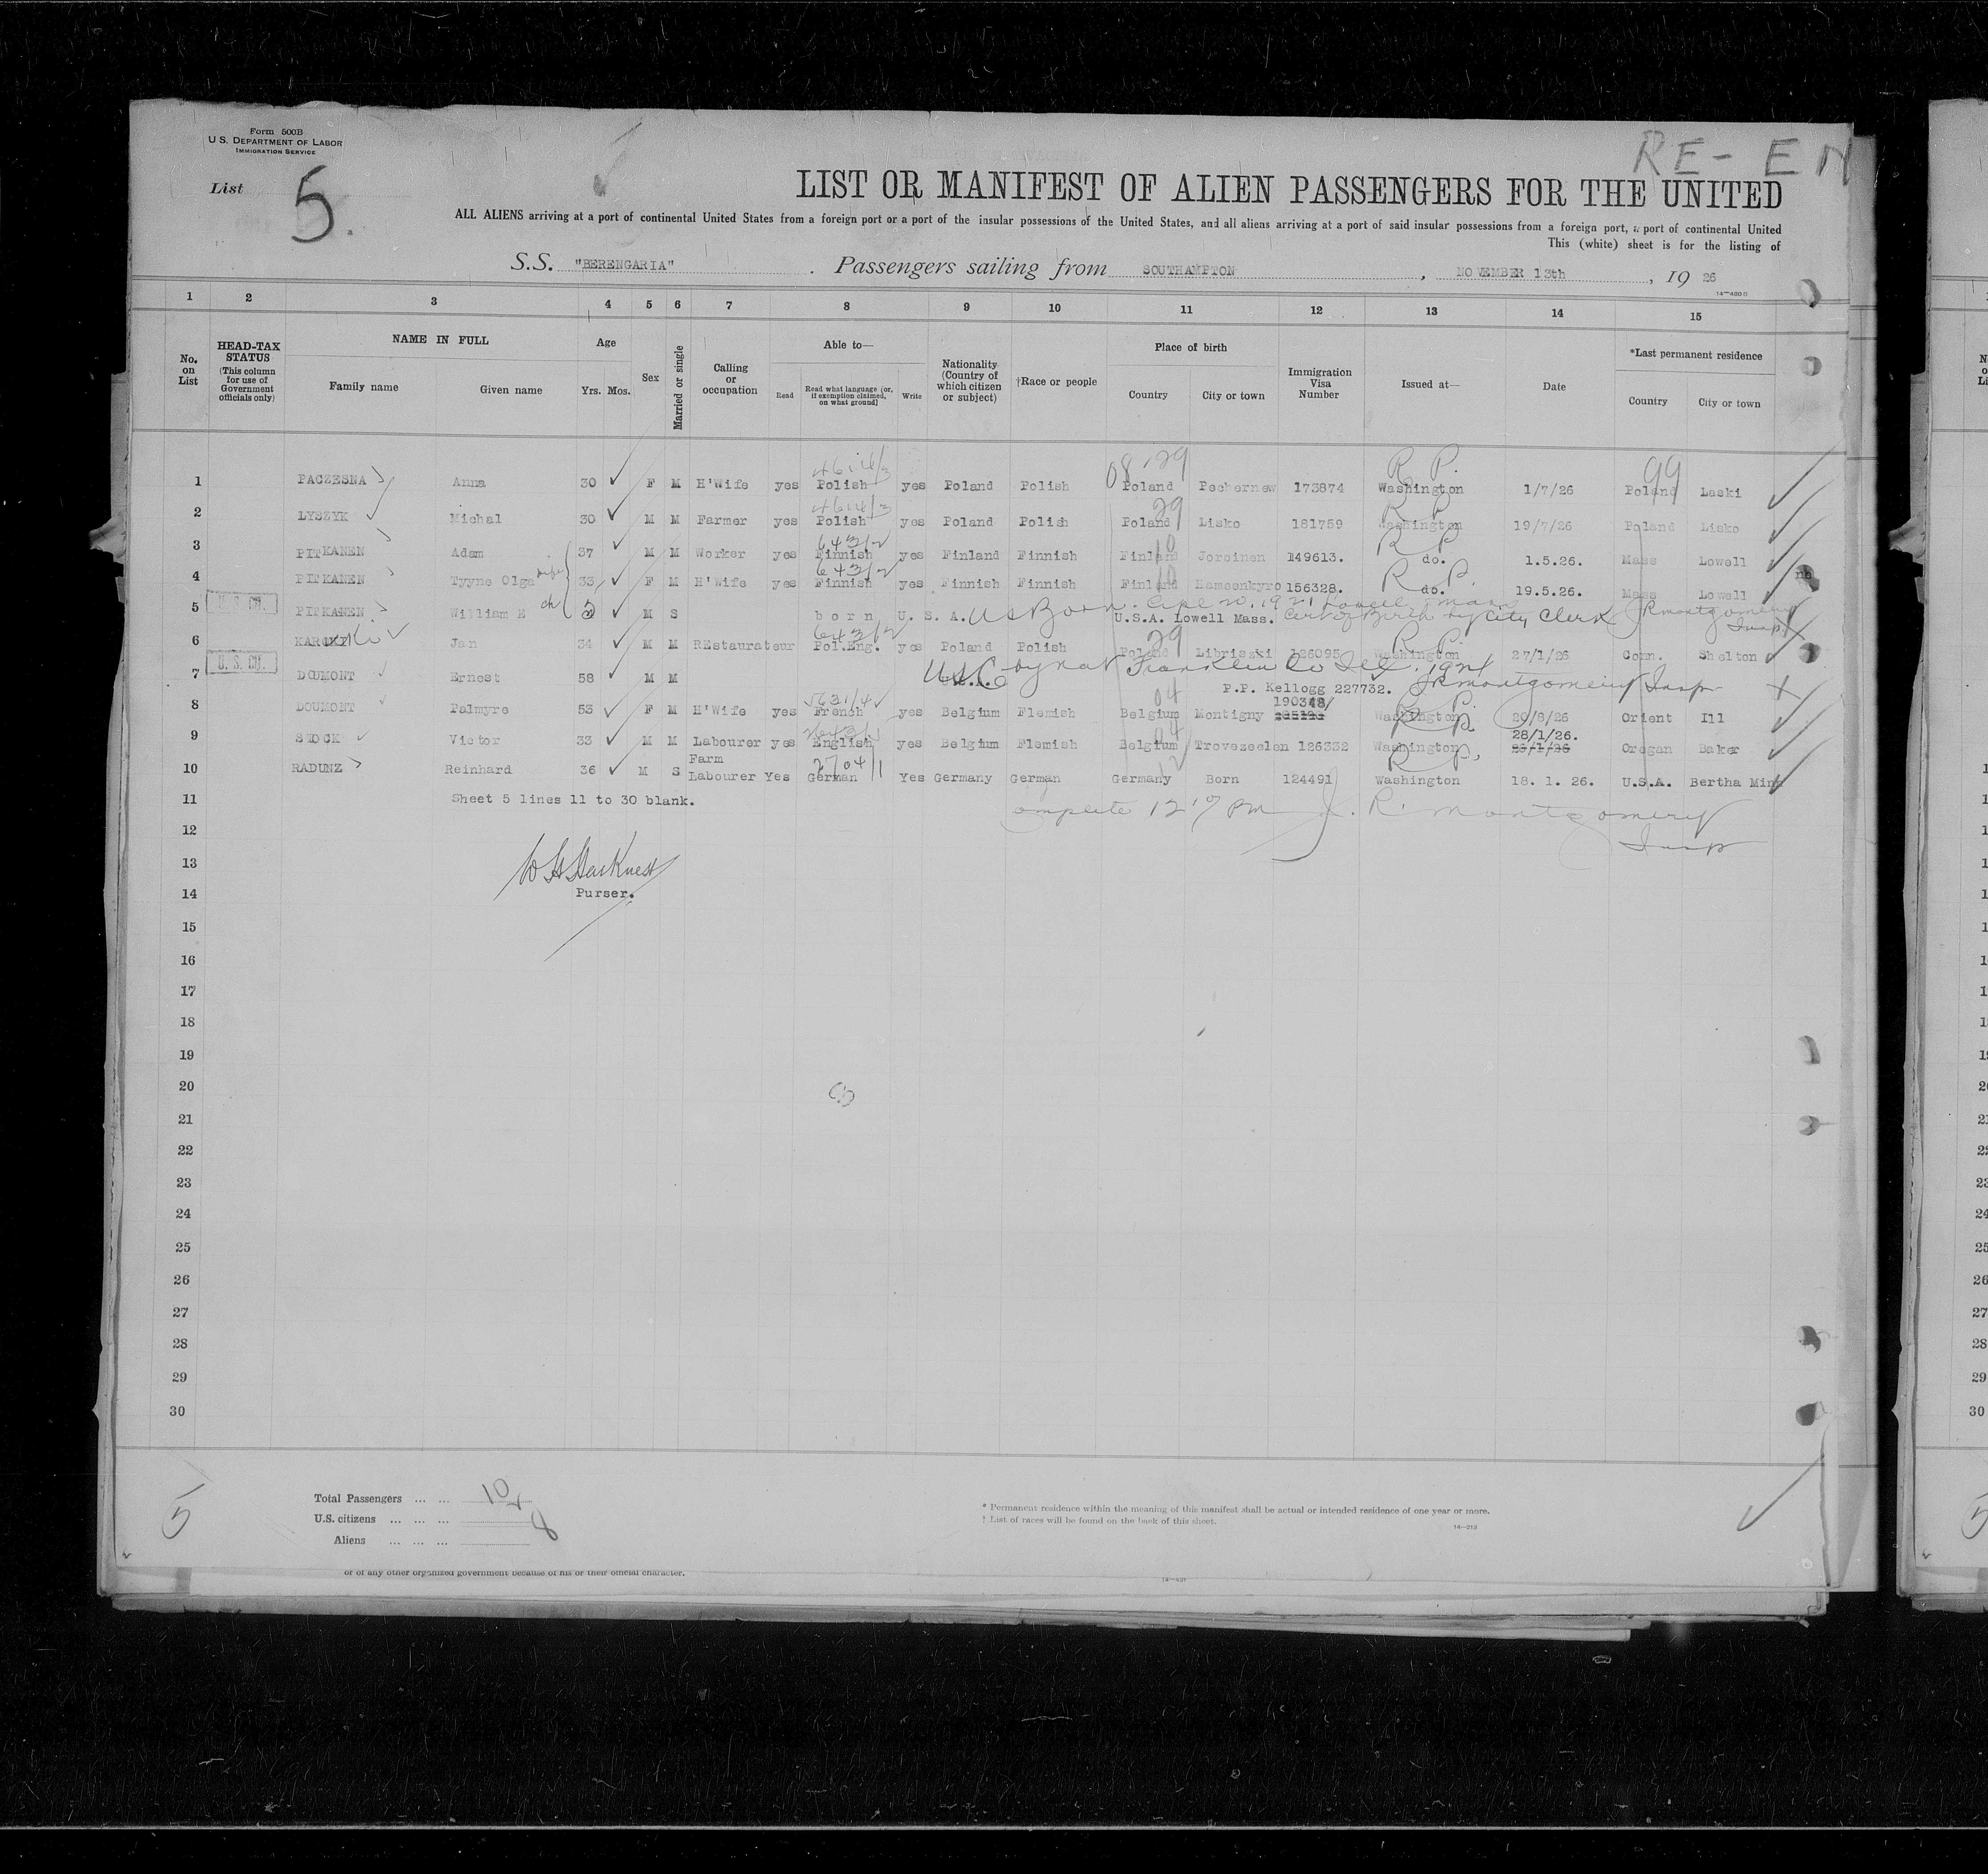 Form 500B
U.S. DEPARTMENT OF LABOR
IMMIGRATION SERVICE
RE- EN
List 5.
LIST OR MANIFEST OF ALIEN PASSENGERS FOR THE UNITED
ALL ALIENS arriving at a port of continental United States from a foreign port or a port of the insular possessions of the United States, and all aliens arriving at a port of said insular possessions from a foreign port, a port of continental United
This (white) sheet is for the listing of
S.S. "BERENGARIA" . Passengers sailing from SOUTHAMPTON , NOVEMBER 13th , 19 26
14—430 B
1 2 3 4 5 6 7 8 9 10 11 12 13 14 15
No. on List
HEAD-TAX STATUS (This column for use of Government officials only)
NAME IN FULL
Family name Given name
Age
Yrs. Mos.
Sex
Married or single
Calling or occupation
Able to—
Read Read what language (or, if exemption claimed, on what ground) Write
Nationality (Country of which citizen or subject)
†Race or people
Place of birth
Country City or town
Immigration Visa Number
Issued at—
Date
*Last permanent residence
Country City or town
4614/3 08 '29 R P. 99
1 PACZESNA Anna 30 F M H'Wife yes Polish yes Poland Polish Poland Pechernew 173874 Washington 1/7/26 Poland Laski
4614/3 29 R P
2 LYSZYK Michal 30 M M Farmer yes Polish yes Poland Polish Poland Lisko 181759 Washington 19/7/26 Poland Lisko
643/2 10 R P
3 PITKANEN Adam 37 M M Worker yes Finnish yes Finland Finnish Finland Joroinen 149613. do. 1.5.26. Mass Lowell
643/2 10 R P.
4 PITKANEN Tyyne Olga wife 33 F M H'Wife yes Finnish yes Finnish Finnish Finland Hameenkyro 156328. do. 19.5.26. Mass Lowell
U.S. CH.
5 PITKANEN William E ch 5 M S born U. S. A. US Born. 1921 Lowell Mass
U.S.A. Lowell Mass. Cert of Birth by City Clerk JRMontgomery Insp.
643/2 29 R P.
6 KARCZKi Jan 34 M M REstaurateur Pol.Eng. yes Poland Polish Poland Libriszki 126095 Washington 27/1/26 Conn. Shelton
U.S. CH.
7 DOUMONT Ernest 58 M M USC by nat Franklin Co Ill. 1921
P.P. Kellogg 227732. JRMontgomery Insp
5631/4 04 190348/ R P.
8 DOUMONT Palmyre 53 F M H'Wife yes French yes Belgium Flemish Belgium Montigny Washington 20/8/26 Orient Ill
04 28/1/26.
9 STOCK Victor 33 M M Labourer yes English yes Belgium Flemish Belgium Trovezeelen 126332 Washington 29/1/26 Oregan Baker
2704/1 12 R P.
10 RADUNZ Reinhard 36 M S Farm Labourer Yes German Yes Germany German Germany Born 124491 Washington 18. 1. 26. U.S.A. Bertha Minn
11 Sheet 5 lines 11 to 30 blank.
J. R. Montgomery
12 Insp
13
Purser.
14
15
16
17
18
19
20
21
22
23
24
25
26
27
28
29
30
5
Total Passengers ... ... 10
U.S. citizens ... ... ... 2
Aliens ... ... ... 8
* Permanent residence within the meaning of this manifest shall be actual or intended residence of one year or more.
† List of races will be found on the back of this sheet.
14—213
or of any other organized government because of his or their official character.
14—431